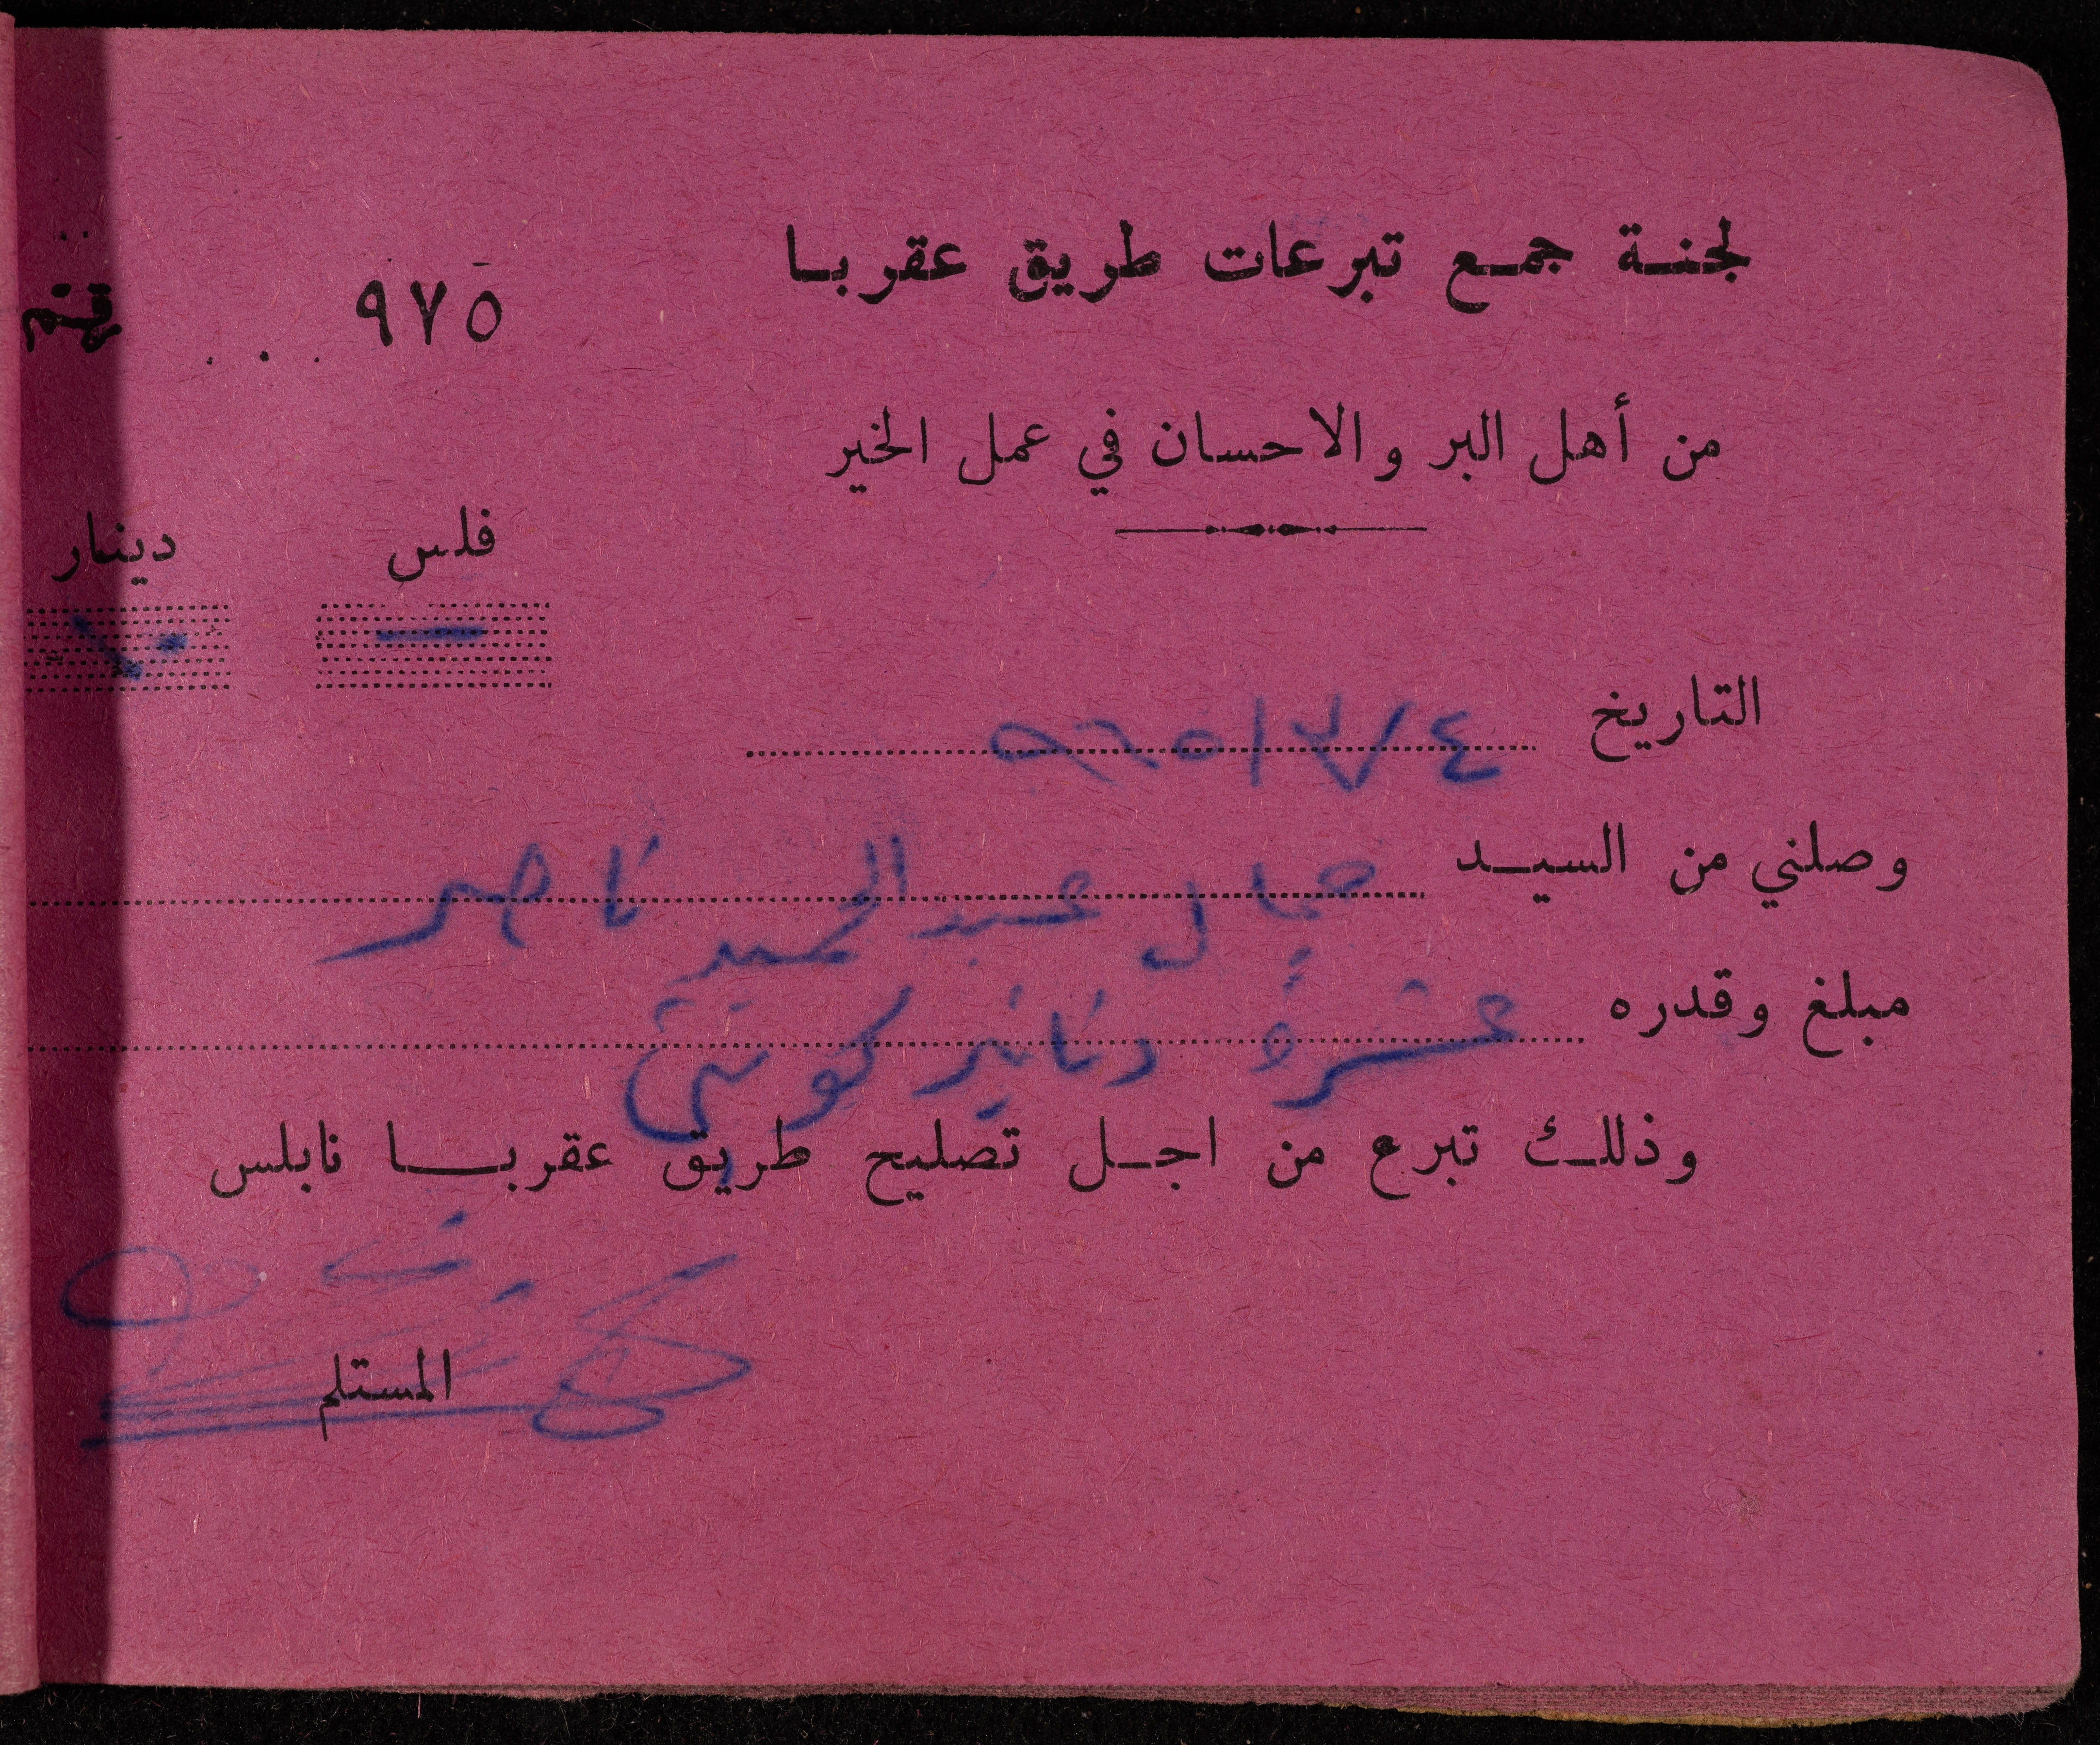 لجنة جمع تبرعات طريق عقربا
٩٧٥
من أهل البر والاحسان في عمل الخير
فلس دينار
— ١٠
التاريخ ٤/٣/
وصلني من السيد جمال عبد الحميد ناصر
مبلغ وقدره عشرة دنانير كويتي
وذلك تبرع من اجل تصليح طريق عقربا نابلس
المستلم